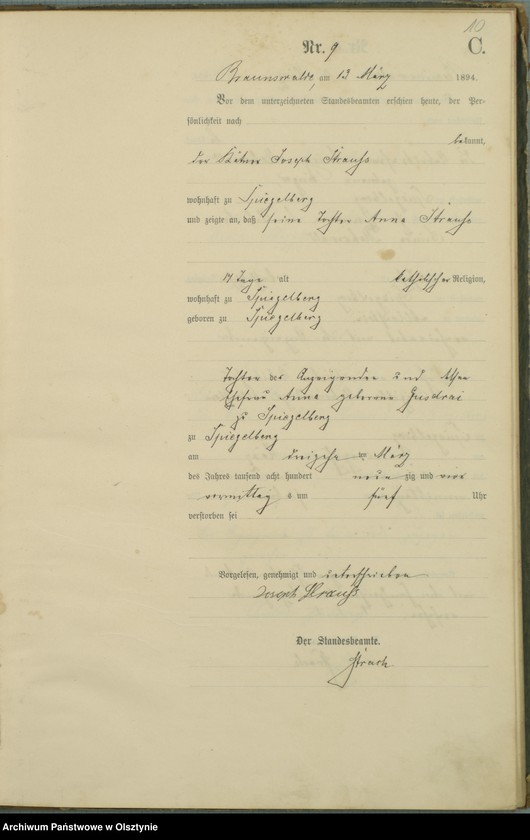 10
Nr. 9 C.
Braunswalde, am 13 März 1894.
Vor dem unterzeichneten Standesbeamten erschien heute, der Per-
sönlichkeit nach
bekannt,
der Käthner Joseph Strauss
wohnhaft zu Spiegelberg
und zeigte an, daß seine Tochter Anna Strauss
Tage alt katholischer Religion,
wohnhaft zu Spiegelberg
geboren zu Spiegelberg
Tochter des Anzeigenden und dessen
Ehefrau Anna geborene
zu Spiegelberg
zu Spiegelberg
am ten März
des Jahres tausend acht hundert neun zig und vier
vormittag s um fünf Uhr
verstorben sei
Vorgelesen, genehmigt und unterschrieben
Joseph Strauss
Der Standesbeamte.
Archiwum Państwowe w Olsztynie